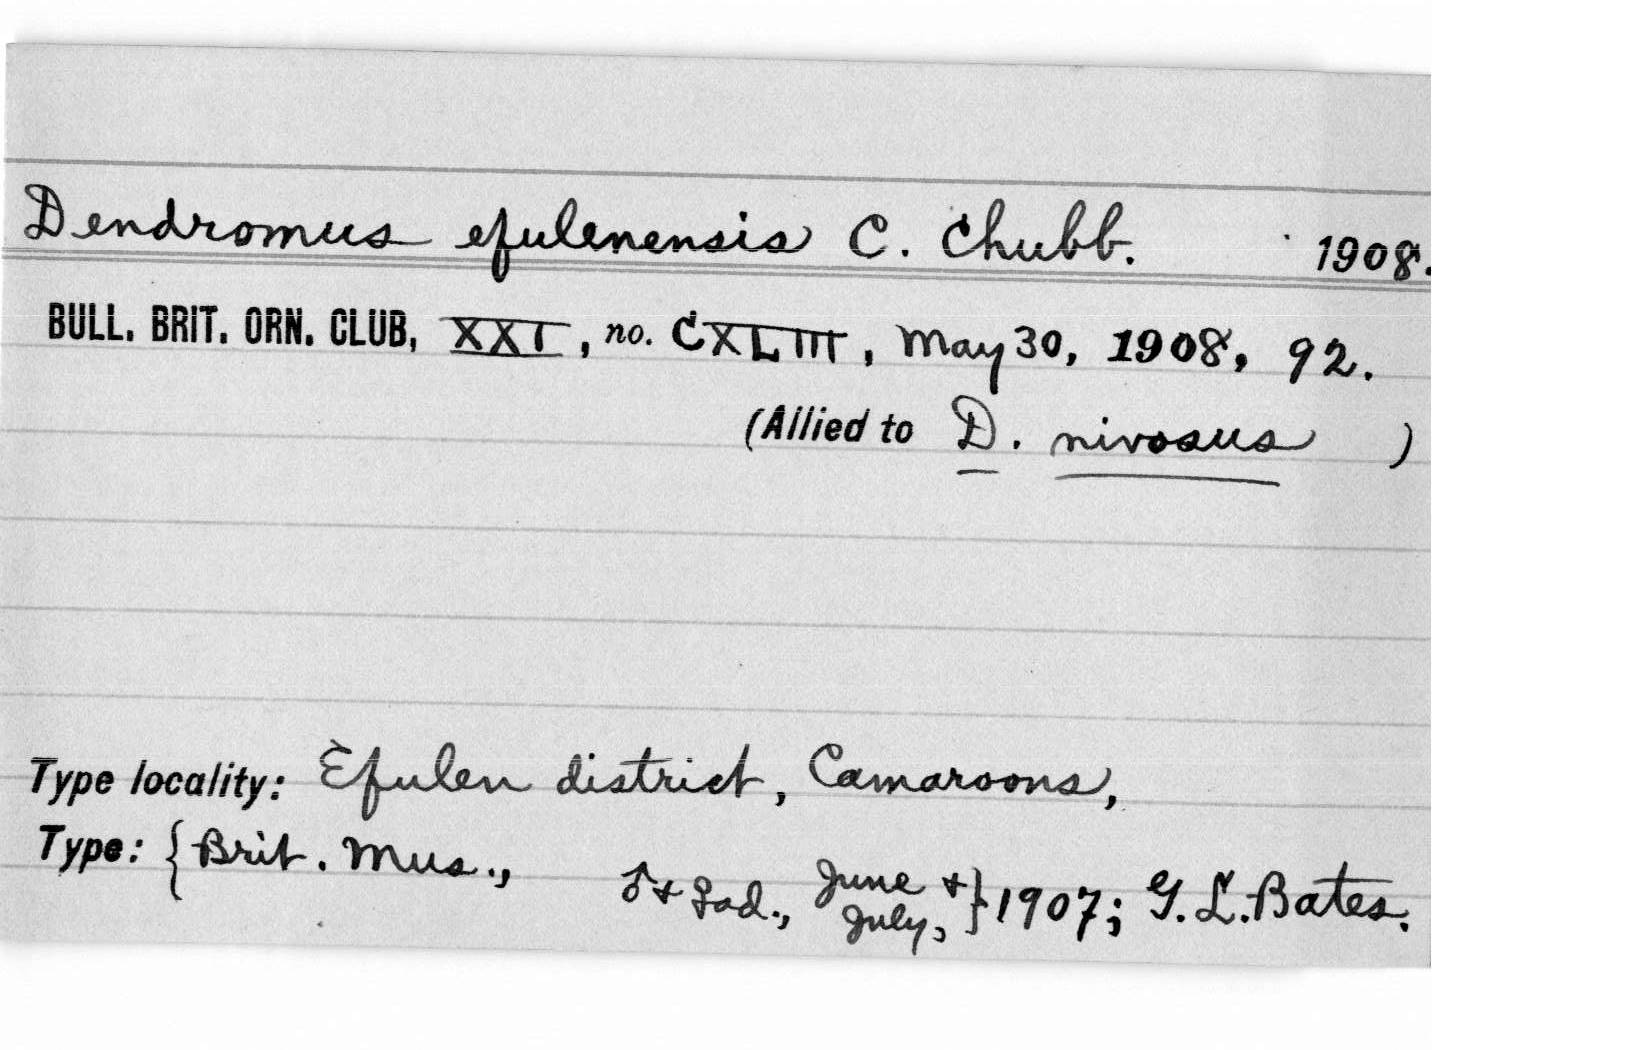 Dendromus efulenensis C. Chubb. 1908.
BULL. BRIT. ORN. CLUB, XXI, no. CXLIII, May 30, 1908, 92.
(Allied to D. nivosus )
Type locality: Efulen district, Camaroons,
Type: { Brit. Mus., ♂ + ♀ ad., June + July, } 1907; G. L. Bates.